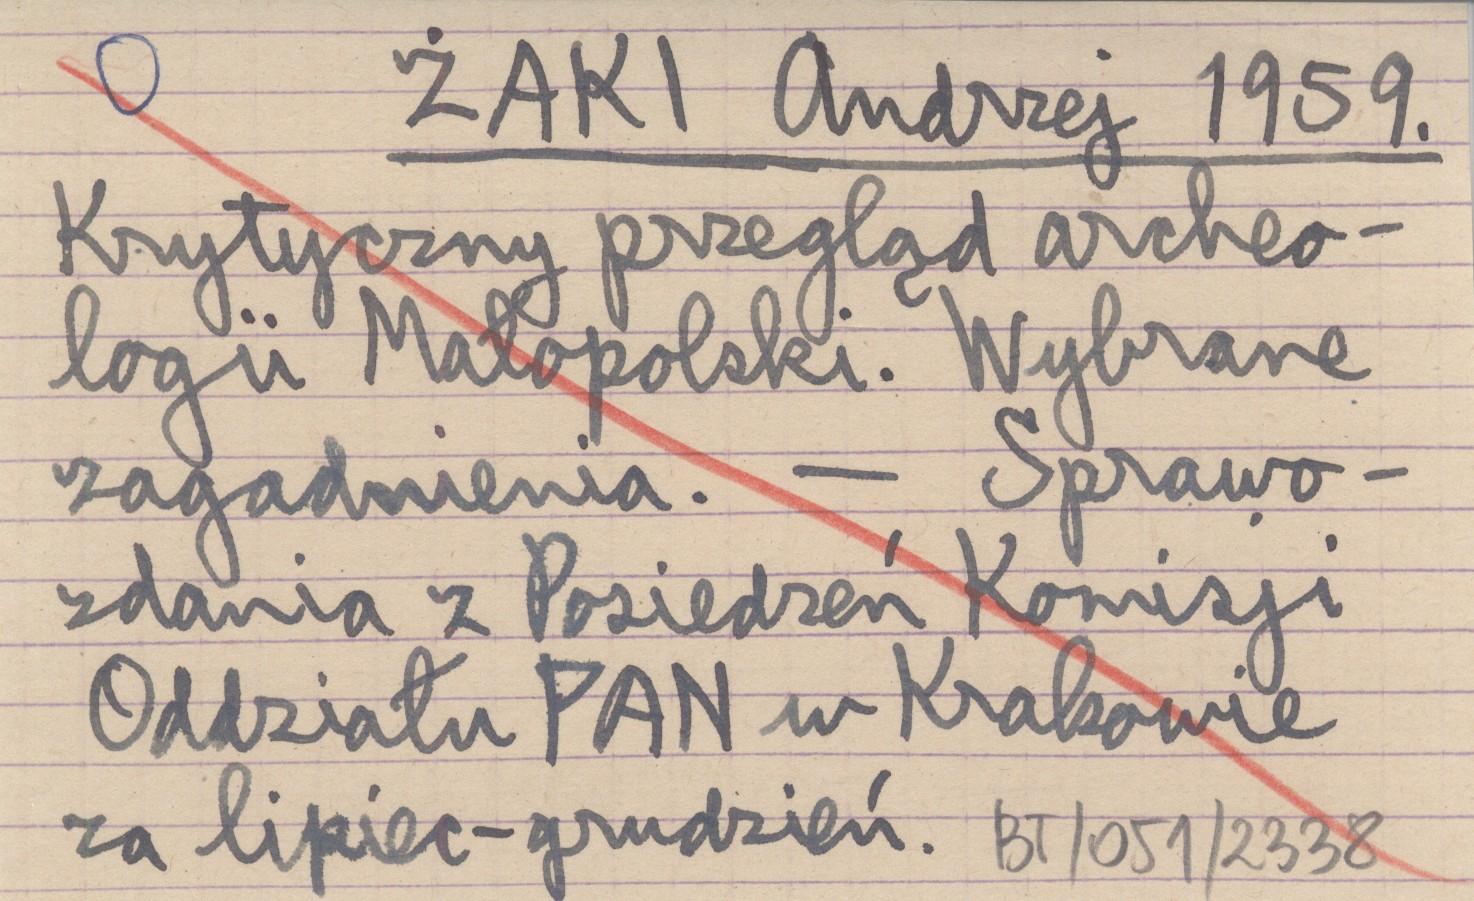 ŻAKI Andrzej 1959.
Krytyczny przegląd archeo-
logii Małopolski. Wybrane
zagadnienia. — Sprawo-
zdania z Posiedzeń Komisji
Oddziału PAN w Krakowie
za lipiec-grudzień. BT/051/2338